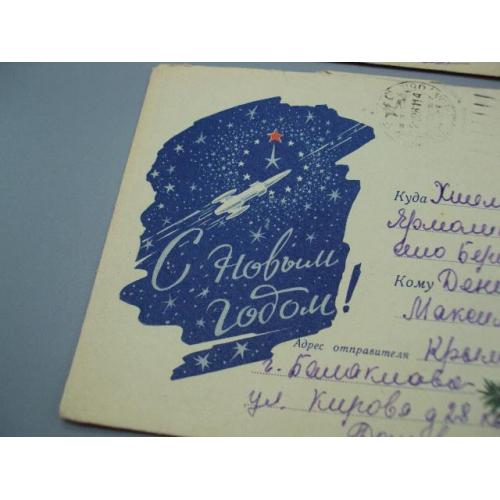 С Новым
годом!
Куда
Ярмолин
село Бере
Кому Дени
Максим
Адрес отправителя Крым
г. Балаклава
ул. Кирова д 28 кв